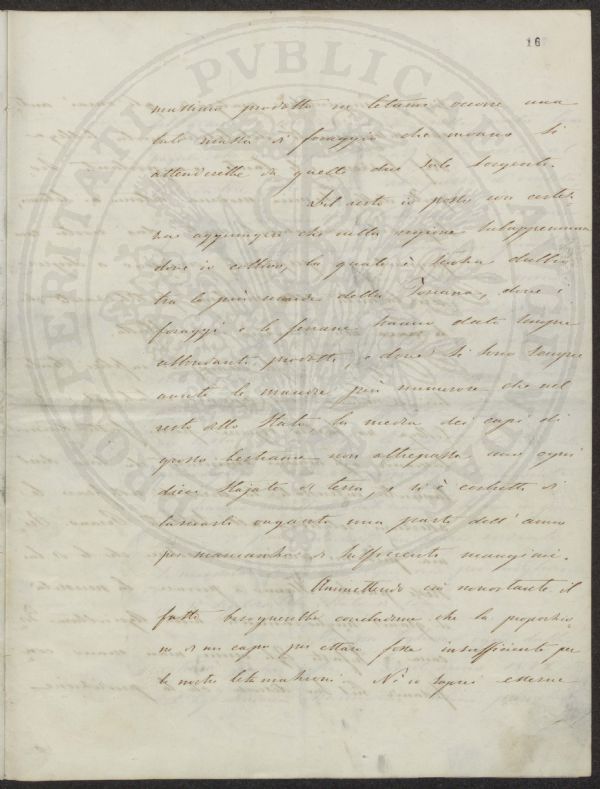 16
PVBLICAE
PROSPERITATI
materia prodotta in letame occorre una
tale massa di foraggio che invano si
attenderebbe da queste due sole sorgenti.
Del resto io posso con certez-
za aggiungere che nella regione Subappennina
dove io coltivo, la quale è senza dubbio
tra le più della Toscana, dove i
foraggi e le hanno dato sempre
abbondanti prodotti, e dove si sono sempre
avute le mandre più numerose che nel
resto dello Stato la media dei capi di
grosso bestiame non oltrepassa uno ogni
dieci stajate di terra, e si è costretti di
lasciarlo vagante una parte dell'anno
per mancanza di sufficiente mangiare.
Ammettendo ciò nonostante il
fatto bisognerebbe concludere che la proporzio-
ne di un capo per ettare fosse insufficiente per
le nostre letamazioni. Nè io saprei